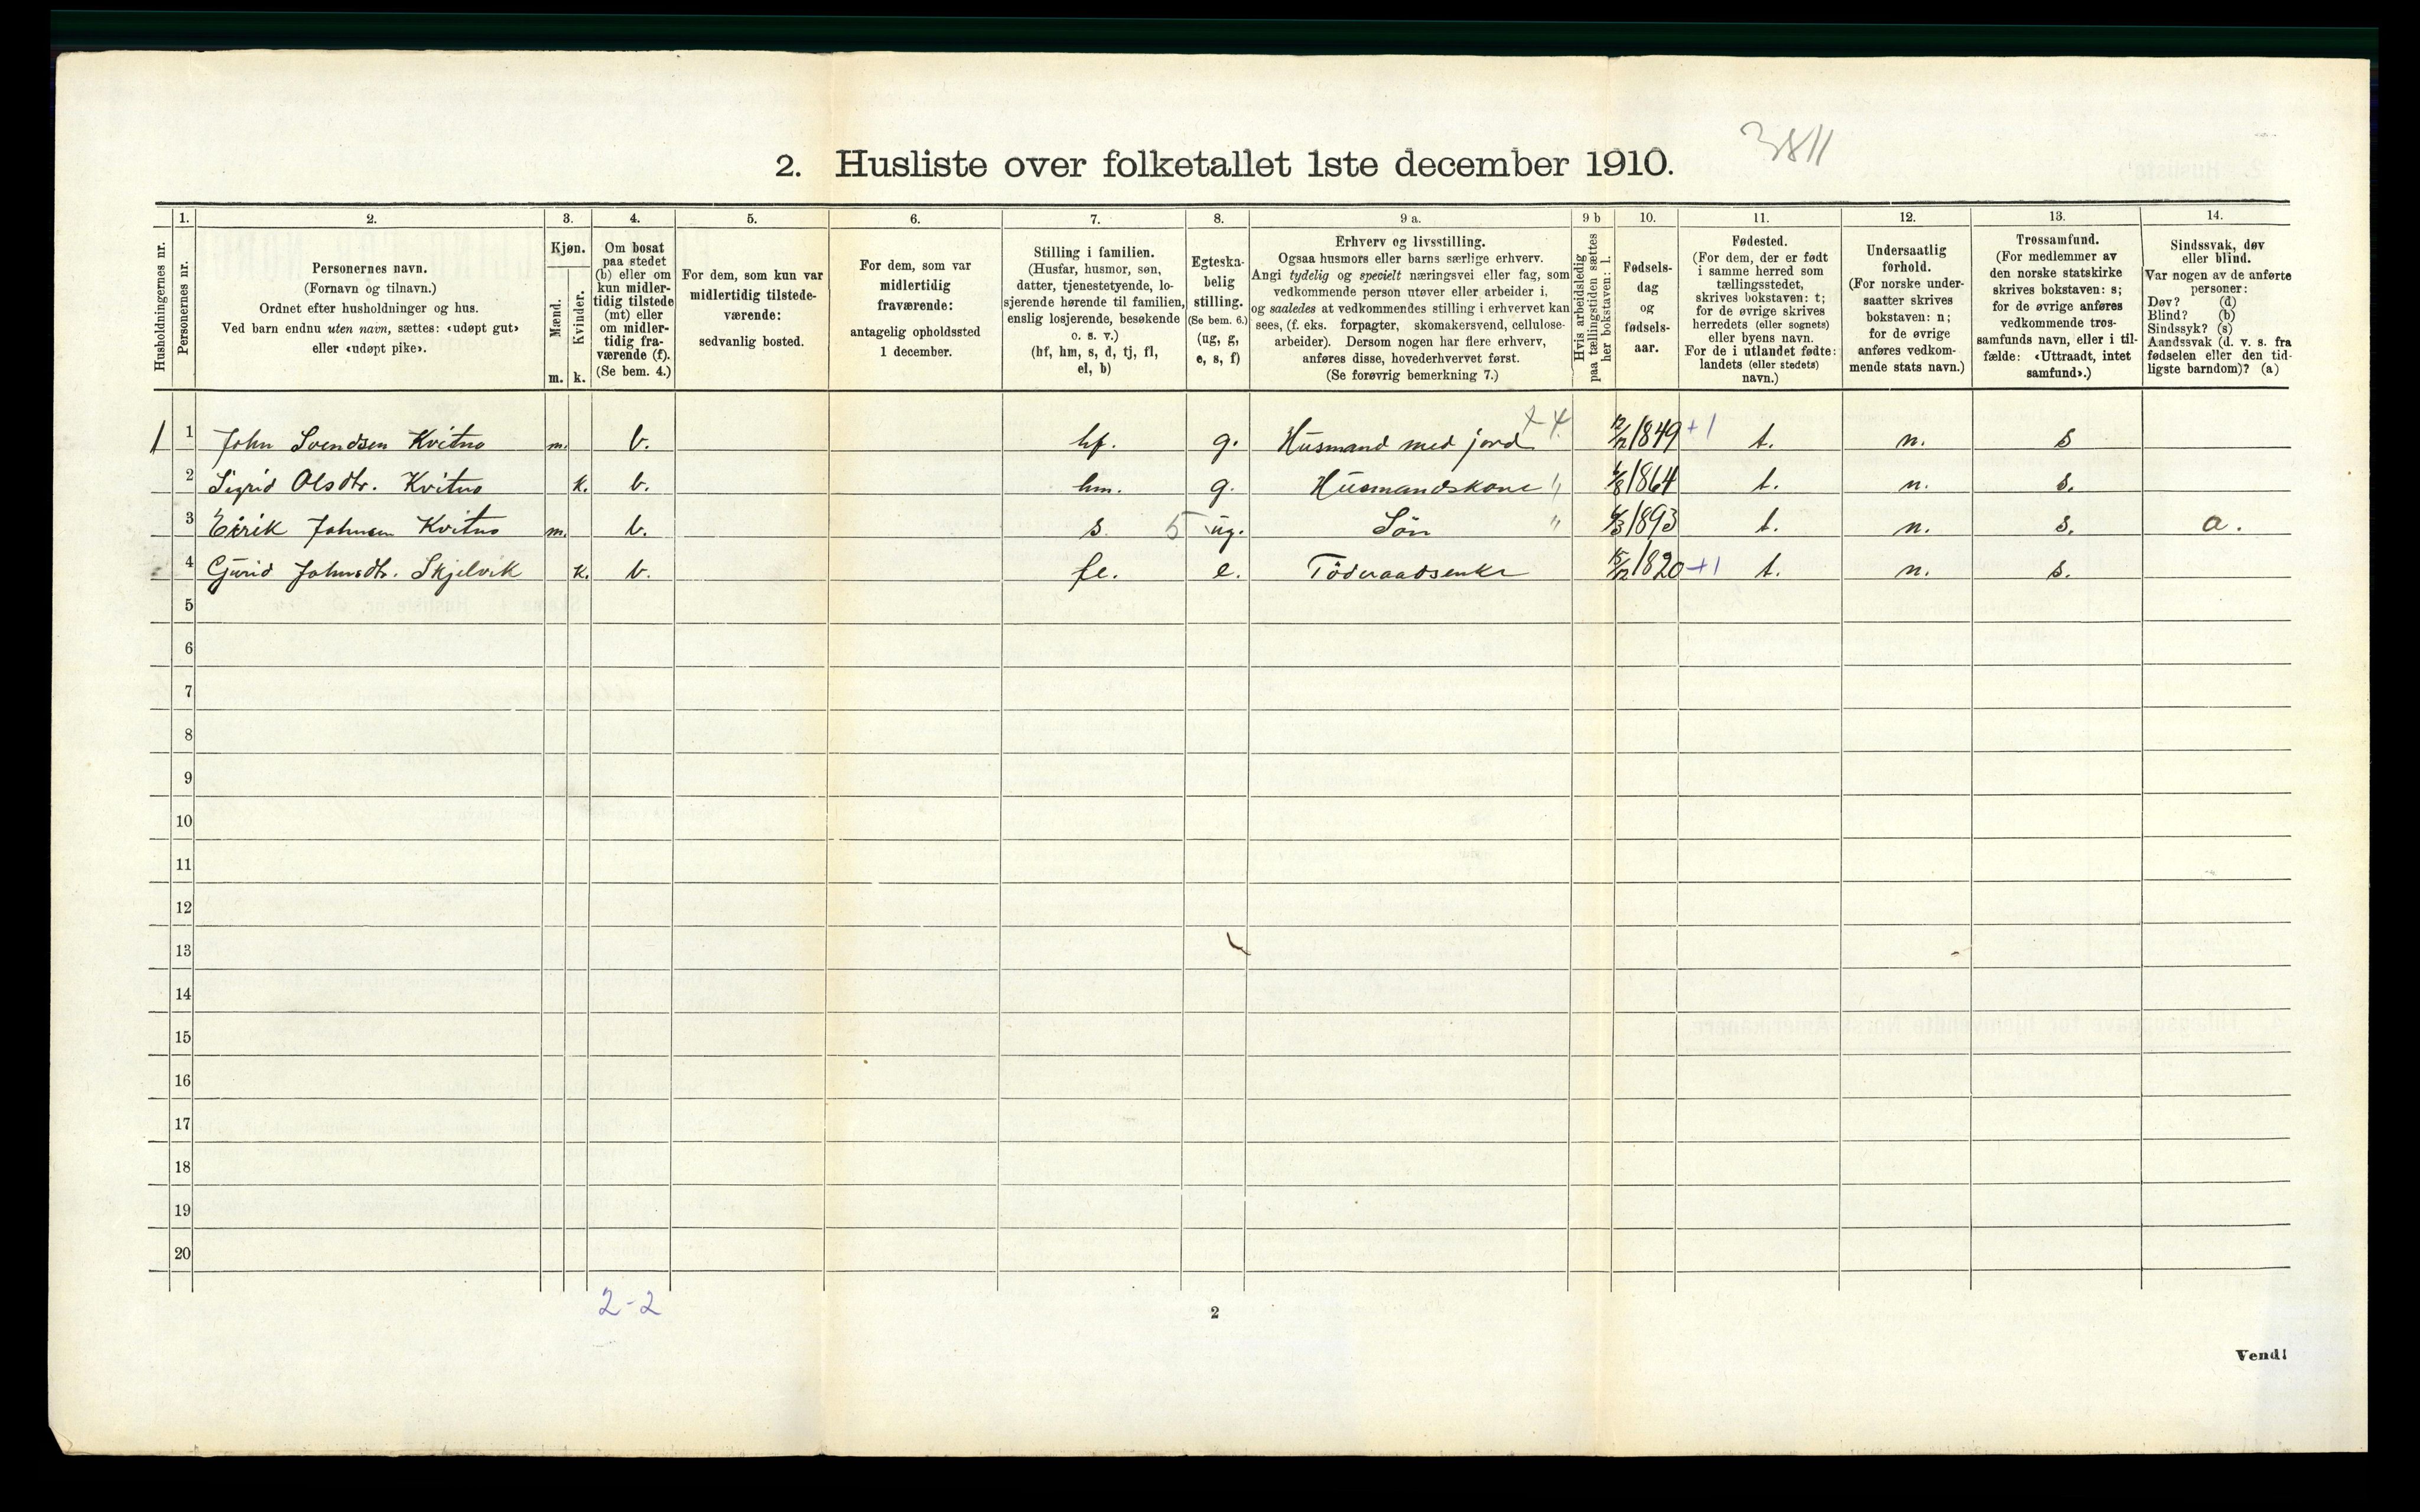 3811
2. Husliste over folketallet 1ste december 1910.
Husholdningernes nr.
1. Personernes nr.
2. Personernes navn.
(Fornavn og tilnavn.)
Ordnet efter husholdninger og hus.
Ved barn endnu uten navn, sættes: «udøpt gut»
eller «udøpt pike».
3. Kjøn.
Mænd. Kvinder.
m. k.
4. Om bosat
paa stedet
(b) eller om
kun midler-
tidig tilstede
(mt) eller
om midler-
tidig fra-
værende (f).
(Se bem. 4.)
5. For dem, som kun var
midlertidig tilstede-
værende:
sedvanlig bosted.
6. For dem, som var
midlertidig
fraværende:
antagelig opholdssted
1 december.
7. Stilling i familien.
(Husfar, husmor, søn,
datter, tjenestetyende, lo-
sjerende hørende til familien,
enslig losjerende, besøkende
o. s. v.)
(hf, hm, s, d, tj, fl,
el, b)
8. Egteska-
belig
stilling.
(Se bem. 6.)
(ug, g,
e, s, f)
9 a. Erhverv og livsstilling.
Ogsaa husmors eller barns særlige erhverv.
Angi tydelig og specielt næringsvei eller fag, som
vedkommende person utøver eller arbeider i,
og saaledes at vedkommendes stilling i erhvervet kan
sees, (f. eks. forpagter, skomakersvend, cellulose-
arbeider). Dersom nogen har flere erhverv,
anføres disse, hovederhvervet først.
(Se forøvrig bemerkning 7.)
9 b Hvis arbeidsledig
paa tællingstiden sættes
her bokstaven: l.
10. Fødsels-
dag
og
fødsels-
aar.
11. Fødested.
(For dem, der er født
i samme herred som
tællingsstedet,
skrives bokstaven: t;
for de øvrige skrives
herredets (eller sognets)
eller byens navn.
For de i utlandet fødte:
landets (eller stedets)
navn.)
12. Undersaatlig
forhold.
(For norske under-
saatter skrives
bokstaven: n;
for de øvrige
anføres vedkom-
mende stats navn.)
13. Trossamfund.
(For medlemmer av
den norske statskirke
skrives bokstaven: s;
for de øvrige anføres
vedkommende tros-
samfunds navn, eller i til-
fælde: «Uttraadt, intet
samfund».)
14. Sindssvak, døv
eller blind.
Var nogen av de anførte
personer:
Døv? (d)
Blind? (b)
Sindssyk? (s)
Aandssvak (d. v. s. fra
fødselen eller den tid-
ligste barndom)? (a)
1 1 John Svendsen Kvitno m. b. hf. g. Husmand med jord 12/12 1849 +1 t. n. s
2 Sigrid Olsdtr. Kvitno k. b. hm. g. Husmandskone " 1864 t. n. s.
3 Eirik Johnsen Kvitno m. b. s. 5 ug. Sön " 1893 t. n. s. a.
4 Gurid Johnsdtr. Skjelvik k. b. fl. e. Föderaadsenke 15/12 1820 +1 t. n. s.
5
6
7
8
9
10
11
12
13
14
15
16
17
18
19
20
2-2
2
Vend!